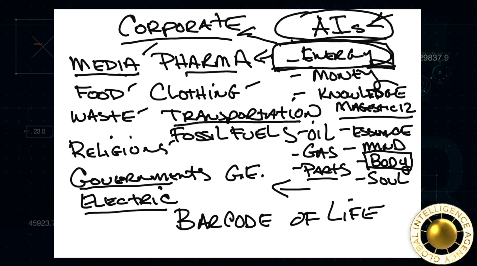 CORPORATE AIs
- ENERGY
MEDIA PHARMA
- MONEY
FOOD CLOTHING - KNOWLEDGE
WASTE TRANSPORTATION MAGESTIC 12
FOSSIL FUELS - OIL - ESSENCE
RELIGIONS - GAS - MIND
- PARTS - BODY
GOVERNMENTS G.E. - SOUL
ELECTRIC
BARCODE OF LIFE
29837.9
-23.8
45923.7
GLOBAL INTELLIGENCE AGENCY